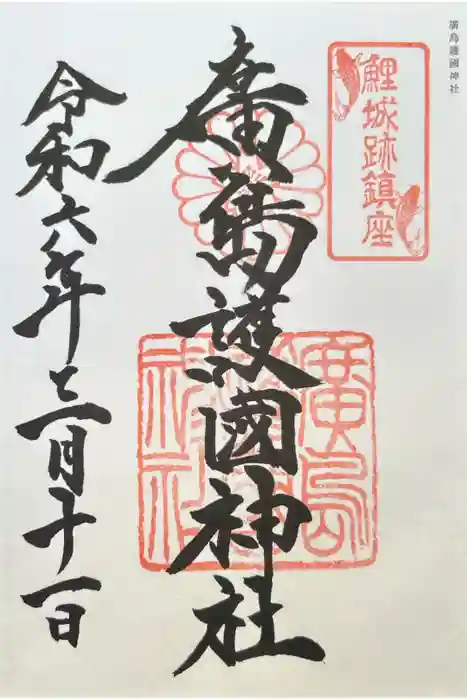 廣島護國神社
鯉城跡鎮座
廣島護國神社
令和六年三月十一日